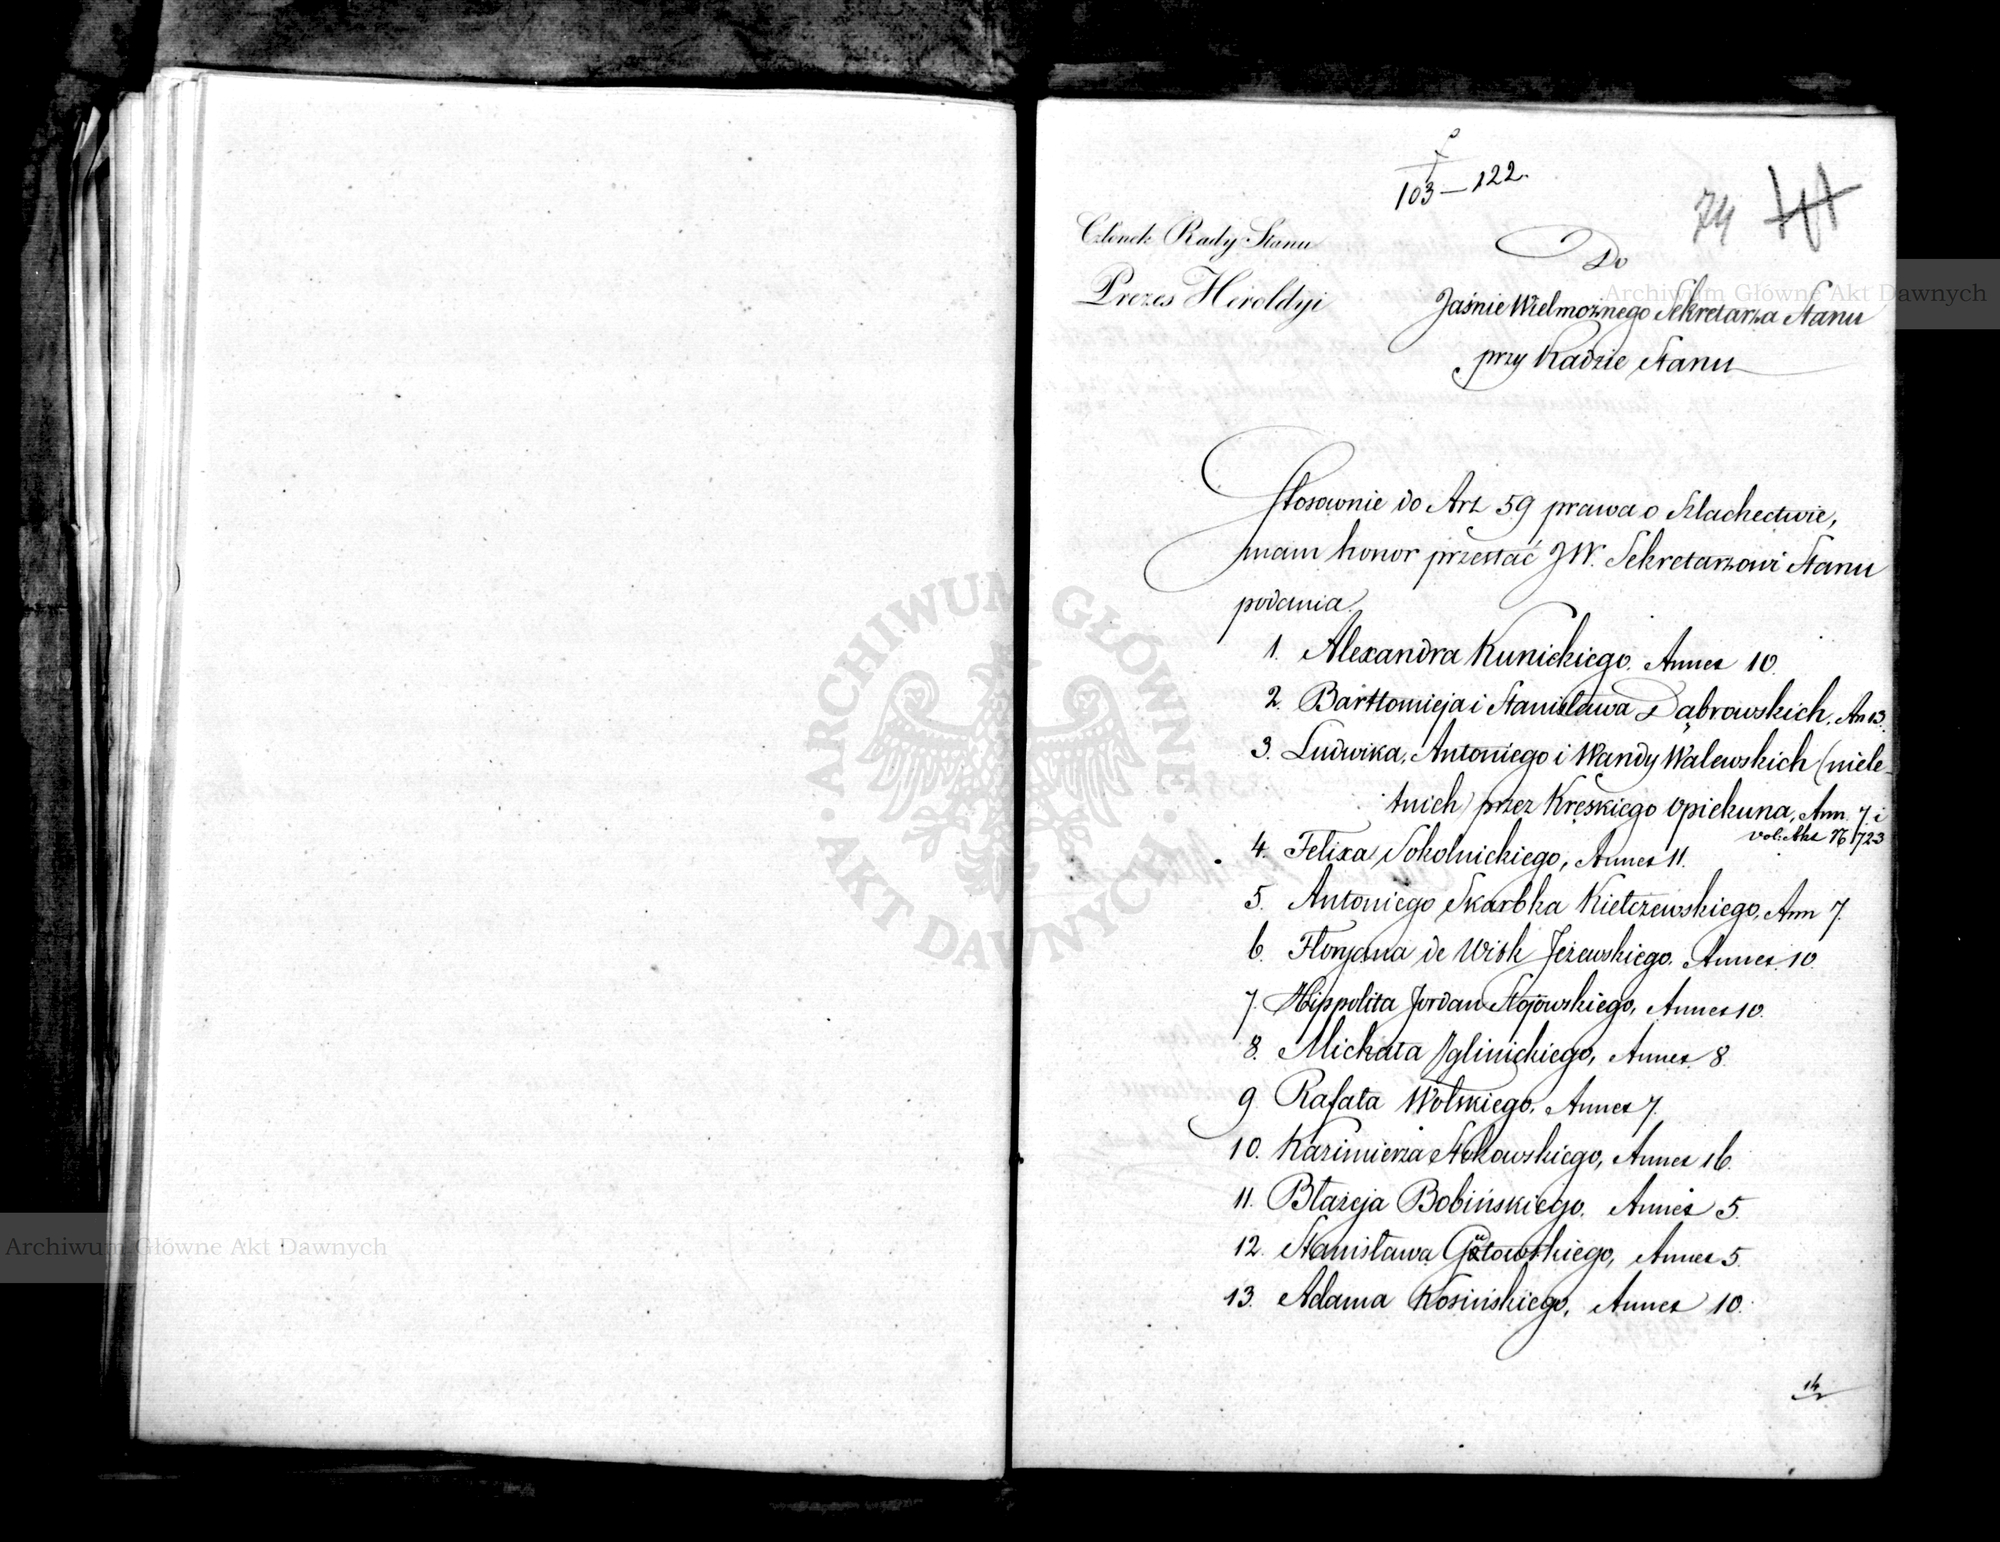 103 — 122.
74
Członek Rady Stanu
Prezes Heroldyi
Do
Jaśnie Wielmożnego Sekretarza Stanu
przy Radzie Stanu
Stosownie do Art 59 prawa o Szlachectwie,
mam honor przesłać JW. Sekretarzowi Stanu
podania.
1. Alexandra Kunickiego. Annex 10.
2. Bartłomieja i Stanisława Dąbrowskich. An 13.
3. Ludwika, Antoniego i Wandy Walewskich (niele-
tnich) przez Kręskiego Opiekuna, Ann. 7. i
vol: Akt N 1723
4. Felixa Sokolnickiego, Annex 11.
5. Antoniego Skarbka Kiełczewskiego, Ann 7.
6. Floryana de Witk Jeżewskiego. Annex. 10.
7. Hippolita Jordan Stojowskiego, Annex 10.
8. Michała Iglinickiego, Annex 8.
9. Rafała Wolskiego, Annex 7.
10. Kazimierza Stokowskiego, Annex 16.
11. Błażeja Bobińskiego. Annex 5.
12. Stanisława Annex 5.
13. Adama Kosińskiego, Annex 10.
14
Archiwum Główne Akt Dawnych
Archiwum Główne Akt Dawnych
ARCHIWUM GŁÓWNE
AKT DAWNYCH